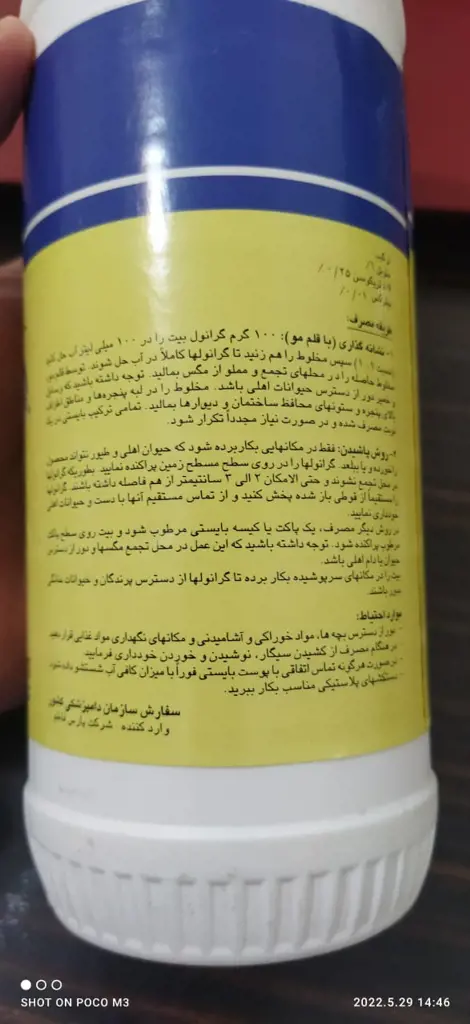 ترکیب
متومیل ۱٪
٪۰/۲۵
٪۰/۰۱
طریقه مصرف:
۱- نشانه گذاری (با قلم مو): ۱۰۰ گرم گرانول بیت را در ۱۰۰ میلی لیتر آب حل کنید
سپس مخلوط را هم زنید تا گرانولها کاملاً در آب حل شوند. توسط قلم مو
حاصله را در محلهای تجمع و مملو از مگس بمالید. توجه داشته باشید که
خمیر دور از دسترس حیوانات اهلی باشد. مخلوط را در لبه پنجره‌ها و مناطق
بالای پنجره و ستونهای محافظ ساختمان و دیوارها بمالید. تمامی ترکیب بایستی در یک
نوبت مصرف شده و در صورت نیاز مجدداً تکرار شود.
۲- روش پاشیدن: فقط در مکانهایی بکار برده شود که حیوان اهلی و طیور نتواند محصول
را خورده و یا ببلعد. گرانولها را در روی سطح مسطح زمین پراکنده نمایید بطوریکه گرانولها
در محل تجمع نشوند و حتی الامکان ۲ الی ۳ سانتیمتر از هم فاصله داشته باشند. گرانولها
را مستقیماً از قوطی باز شده پخش کنید و از تماس مستقیم آنها با دست و حیوانات اهلی
خودداری نمایید.
در روش دیگر مصرف، یک پاکت یا کیسه بایستی مرطوب شود و بیت روی سطح پاکت
مرطوب پراکنده شود. توجه داشته باشید که این عمل در محل تجمع مگسها و دور از دسترس
حیوان یا دام اهلی باشد.
بیت را در مکانهای سرپوشیده بکار برده تا گرانولها از دسترس پرندگان و حیوانات خانگی
دور باشند.
موارد احتیاط:
- دور از دسترس بچه ها، مواد خوراکی و آشامیدنی و مکانهای نگهداری مواد غذایی قرار دهید
- در هنگام مصرف از کشیدن سیگار، نوشیدن و خوردن خودداری فرمایید
- در صورت هرگونه تماس اتفاقی با پوست بایستی فوراً با میزان کافی آب شستشو داده شود
- دستکشهای پلاستیکی مناسب بکار ببرید.
سفارش سازمان دامپزشکی کشور
وارد کننده شرکت پارس
SHOT ON POCO M3
2022.5.29 14:46